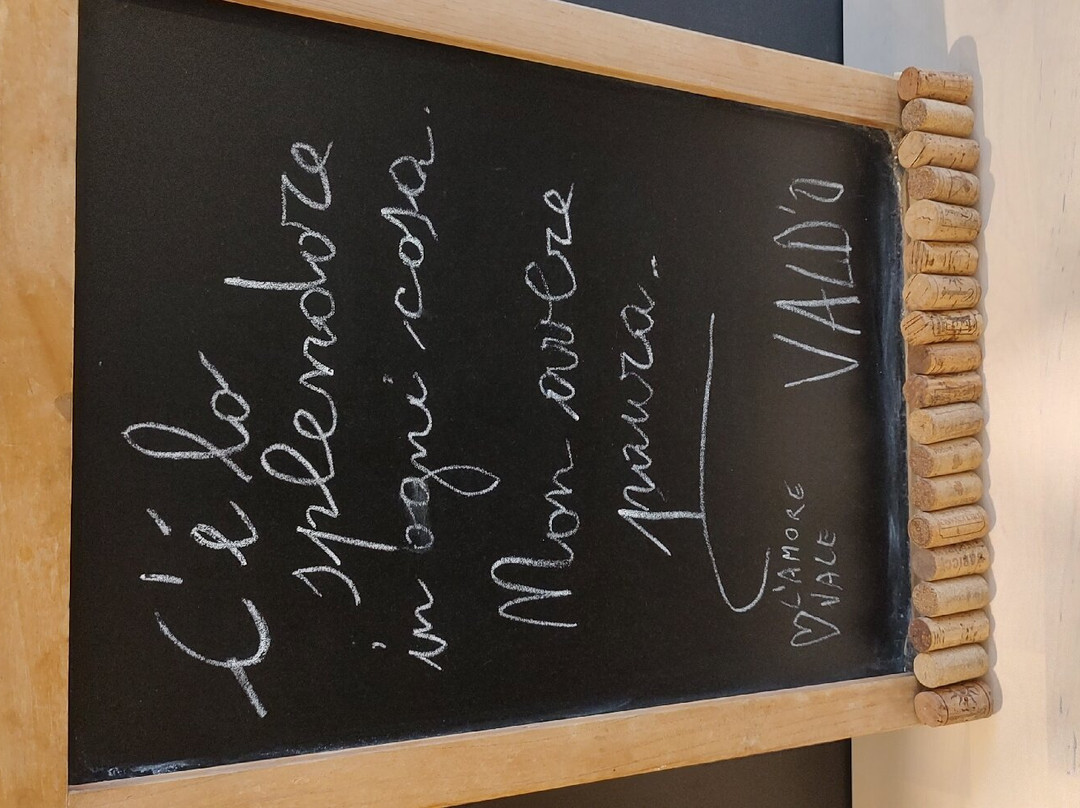 C'è lo
splendore
in ogni cosa.
Non avere
paura.
L'AMORE
VALE
VALD'O